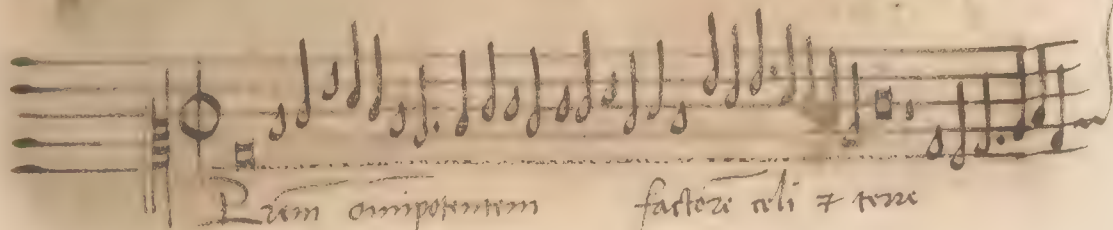 Prem omnipotentem factorē celi ⁊ terre